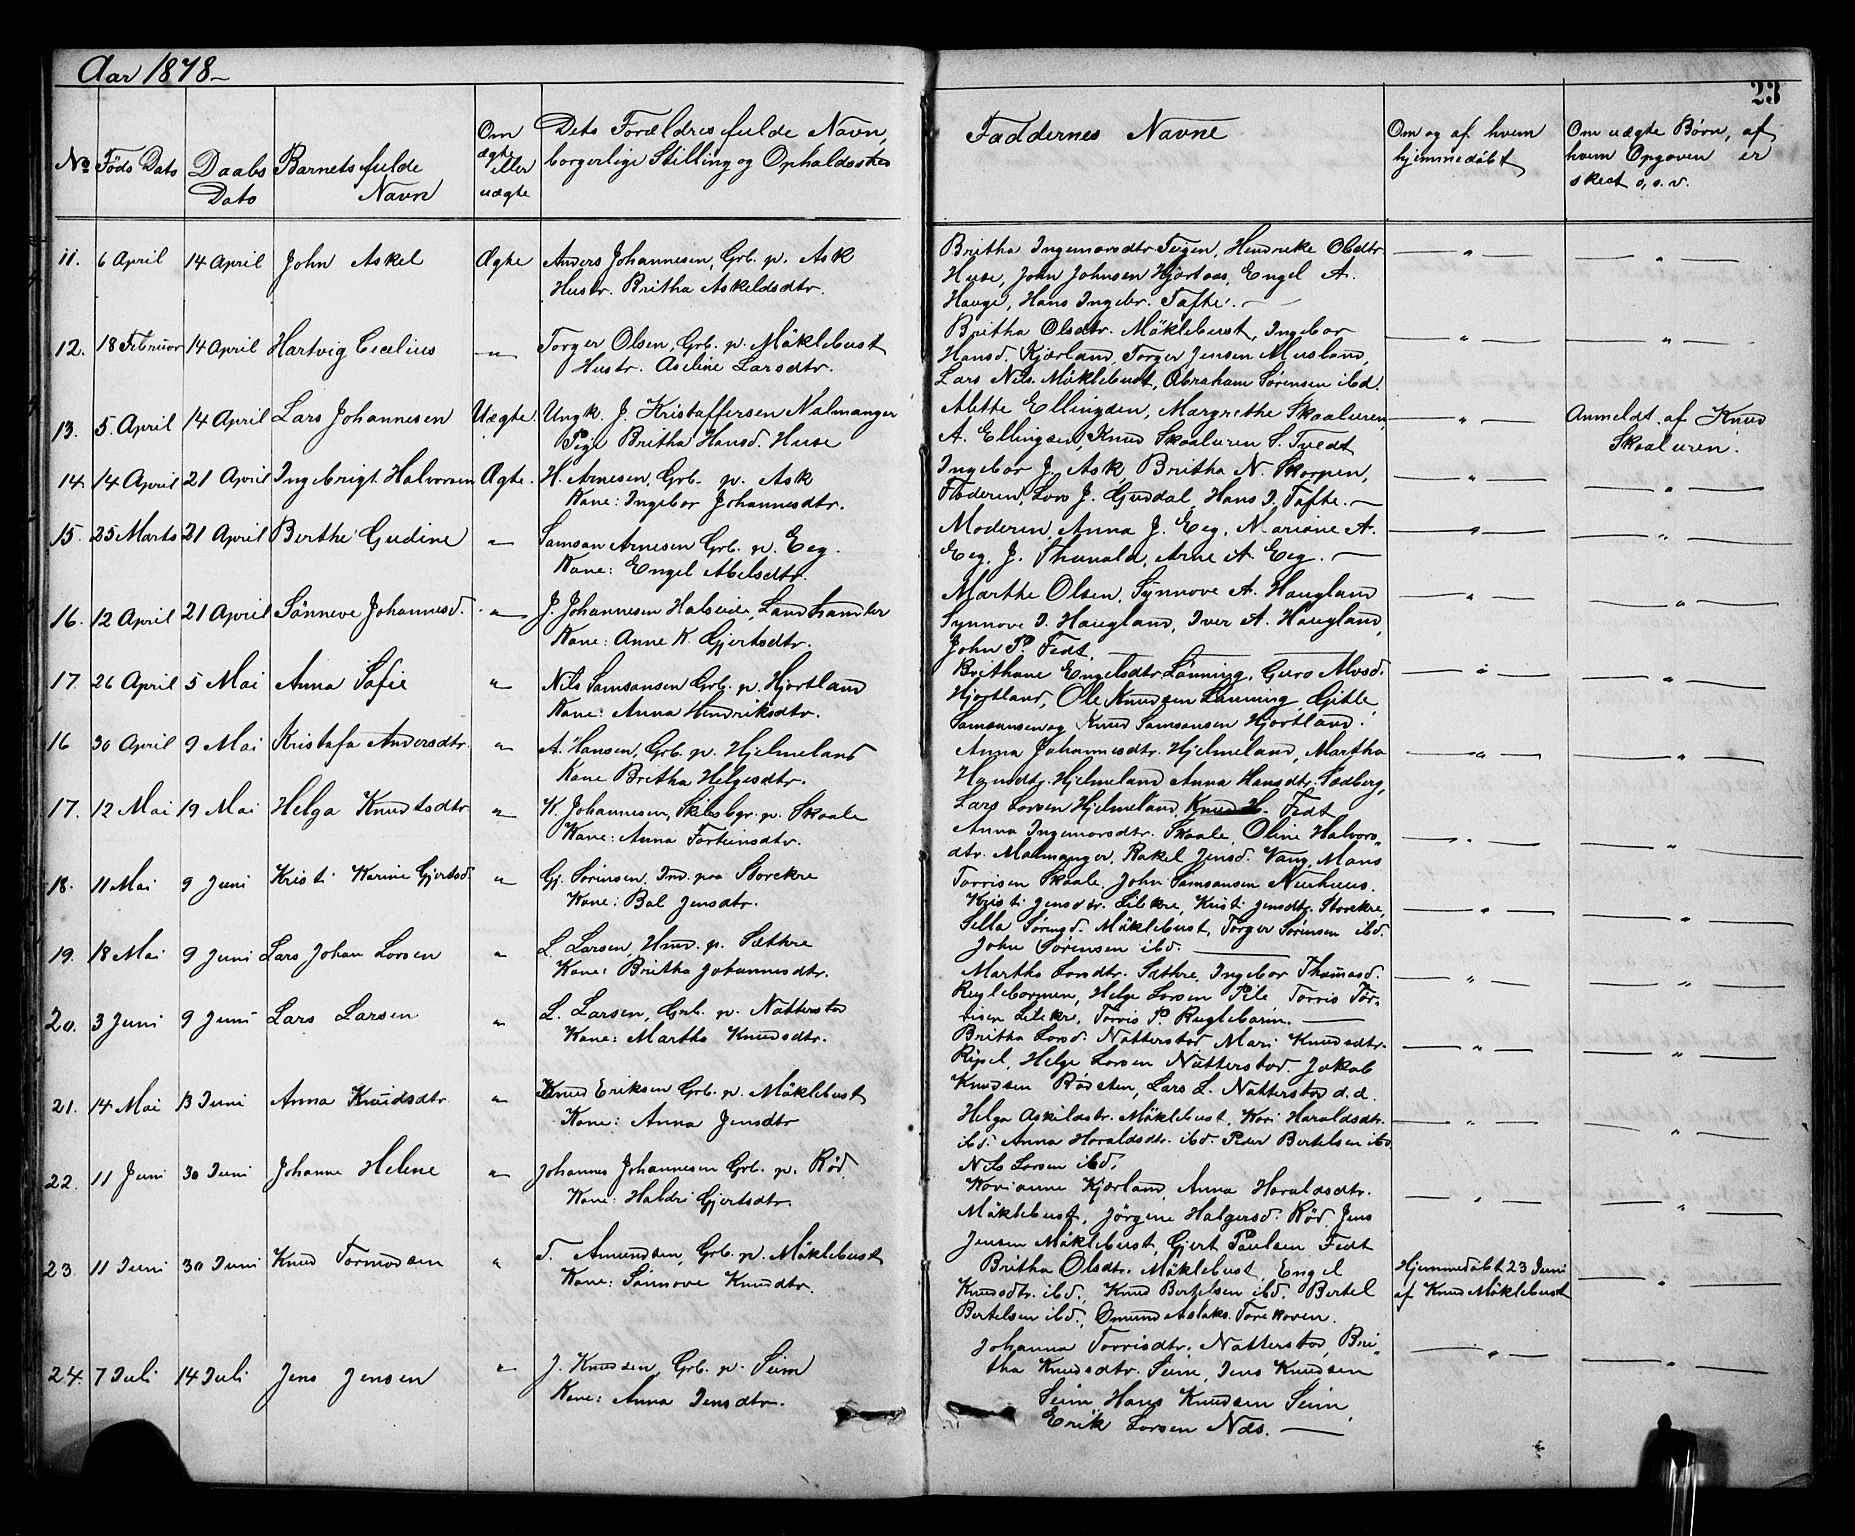 Aar 1878-
23
No
Föds Dato
Daabs Dato
Barnets fulde Navn
Om ægte eller uægte
Dets Forældres fulde Navn, borgerlige Stilling og Opholdssted
Faddernes Navne
Om og af hvem hjemmedøbt
Om uægte Børn, af hvem Opgaven er skeet o, s. v.
11. 6 April 14 April John Askel Ægte Anders Johannesen, Grb. p. Ask
Hustr. Britha Askeldsdtr.
Britha Ingemorsdtr Teigen, Hendrike Olsdtr
Huse, John Johnsen Hjortaas, Engel A.
Hauge, Hans Ingebr. Tafte. —
— " — — " —
12. 18 Februar 14 April Hartvig Cecelius — " — Torger Olsen, Grb. p. Möklebust
Hustr. Aseline Larsdtr.
Britha Olsdtr. Möklebust, Ingebor
Hansd. Kjærland, Torger Jensen Musland,
Lars Nils. Möklebust, Abraham Sørensen ibd.
— " — — " —
13. 5. April 14 April Lars Johannesen Uægte. Ungk. J. Kristaffersen Malmanger
Pige Britha Hansd. Huse
Alette Ellingsen, Margrethe Skaaluren,
A. Ellingsen, Knud Skaaluren S. Tvedt
— " — Anmeldt af Knud
Skaaluren.
14. 14 April 21 April Ingebrigt Halvorsen Ægte. H. Arnesen, Grb. p. Ask
Kone: Ingebor Johannesdtr.
Ingebor J. Ask Britha N. Skorpen,
Faderen, Lars J. Guddal, Hans I. Tafte. —
— " — — " —
15. 25 Marts 21 April Berthe Gudine — " — Samson Arnesen Grb. p. Eeg.
Kone: Engel Abelsdtr.
Moderen, Anna J. Eeg, Mariane A.
Eeg, J. Thunold, Arne A. Eeg. —
— " — — " —
16. 12 April 21 April Sönneve Johannesd. — " — J. Johannesen Halseide, Landhandler
Kone: Anne K. Gjertsdtr.
Marthe Olsen, Synnove A. Haugland
Synnove I. Haugland, Iver A. Haugland,
John P. Fedt. —
— " — — " —
17. 26 April 5 Mai Anna Sofie — " — Nils Samsonsen Grb. p. Hjortland
Kone: Anna Hendriksdtr.
Brithane Engelsdtr Lönning, Guro Alvsd.
Hjortland, Ole Knudsen Lönning, Gjitle
Samsonsen og Knud Samsonsen Hjortland.
— " — — " —
16 30 April 9 Mai Kristafa Andersdtr. — " — A. Hansen, Grb. p. Hjelmeland
Kone Britha Helgesdtr.
Anna Johannesdtr. Hjelmeland, Martha
Hansdtr. Hjelmeland Anna Hansdtr. Sædberg,
Lars Larsen Hjelmeland, Knud H. Fedt
— " — — " —
17. 12 Mai 19 Mai Helga Knudsdtr — " — K. Johannesen, Skibsbgr. p. Skaale
Kone: Anna Torteinsdtr.
Anna Ingemorsdtr. Skaale, Oline Halvors„
dtr. Malmanger, Rakel Jensd. Vang, Mons
Torrisen Skaale, John Samsonsen Nerhuus.
— " — — " —
18. 11 Mai 9 Juni Kristi Karine Gjertsd. — " — Gj. Sörensen, Ind. paa Storekre
Kone: Bol Jensdtr.
Kristi Jensdtr. Lilekre, Kristi Jensdtr. Storekre,
Sella Sörensd. Möklebust, Torger Sörensen ibd.
John Sörensen ibd. —
— " — — " —
19. 18 Mai 9 Juni Lars Johan Larsen " L. Larsen, Hmd. p. Sæthre
Kone: Britha Johannesdtr.
Martha Larsdtr. Sæthre, Ingebor Thomasd.
Reglebormen, Helge Larsen Pile, Torris Tor-
risen Lilekre, Torris P. Ruglebarm. —
— " — — " —
20. 3 Juni 9 Juni Lars Larsen " L. Larsen, Grb. p. Natterstod
Kone: Martha Knudsdtr.
Britha Larsd. Natterstod Mari Knudsdtr.
Ripel, Helge Larsen Natterstod. Jakob
Knudsen Rödsten, Lars L. Natterstod d. d.
— " — — " —
21. 14 Mai 13 Juni Anna Knudsdtr " Knud Eriksen Grb. p. Möklebust
Kone: Anna Jensdtr
Helga Askildstr. Möklebust, Kari Haraldsdtr.
ibd. Anna Haraldsdtr. ibd. Peder Bertelsen ibd,
Nils Larsen ibd.
— " — — " —
22. 11 Juni 30 Juni Johanne Helene " Johannes Johannesen Grb. p. Röd.
Kone: Haldri Gjertsdtr.
Karianne Kjærland, Anna Haraldsdtr.
Möklebust, Jörgine Halgersd. Röd. Jens
Jensen Möklebust, Gjert Paulsen Fedt
— " — — " —
23. 11 Juni 30 Juni Knud Tormodsen " T. Amundsen, Grb. p. Möklebust
Kone: Sönnove Knudtr.
Britha Olsdtr. Möklebust, Engel
Knudsdtr. ibd., Knud Bertelsen ibd. Bertel
Bertelsen ibd., Omund Aslaks. Torekoven.
Hjemmedöbt 23 Juni
af Knud Möklebust
— " —
24. 7 Juli 14 Juli Jens Jensen " J. Knudsen, Grb. p. Seim
Kone: Anna Jensdtr.
Johanna Torrisdtr. Natterstod, Bri„
tha Knudsdtr. Seim, Jens Knudsen
Seim, Hans Knudsen Seim,
Erik Larsen Nds. —
— " — — " —